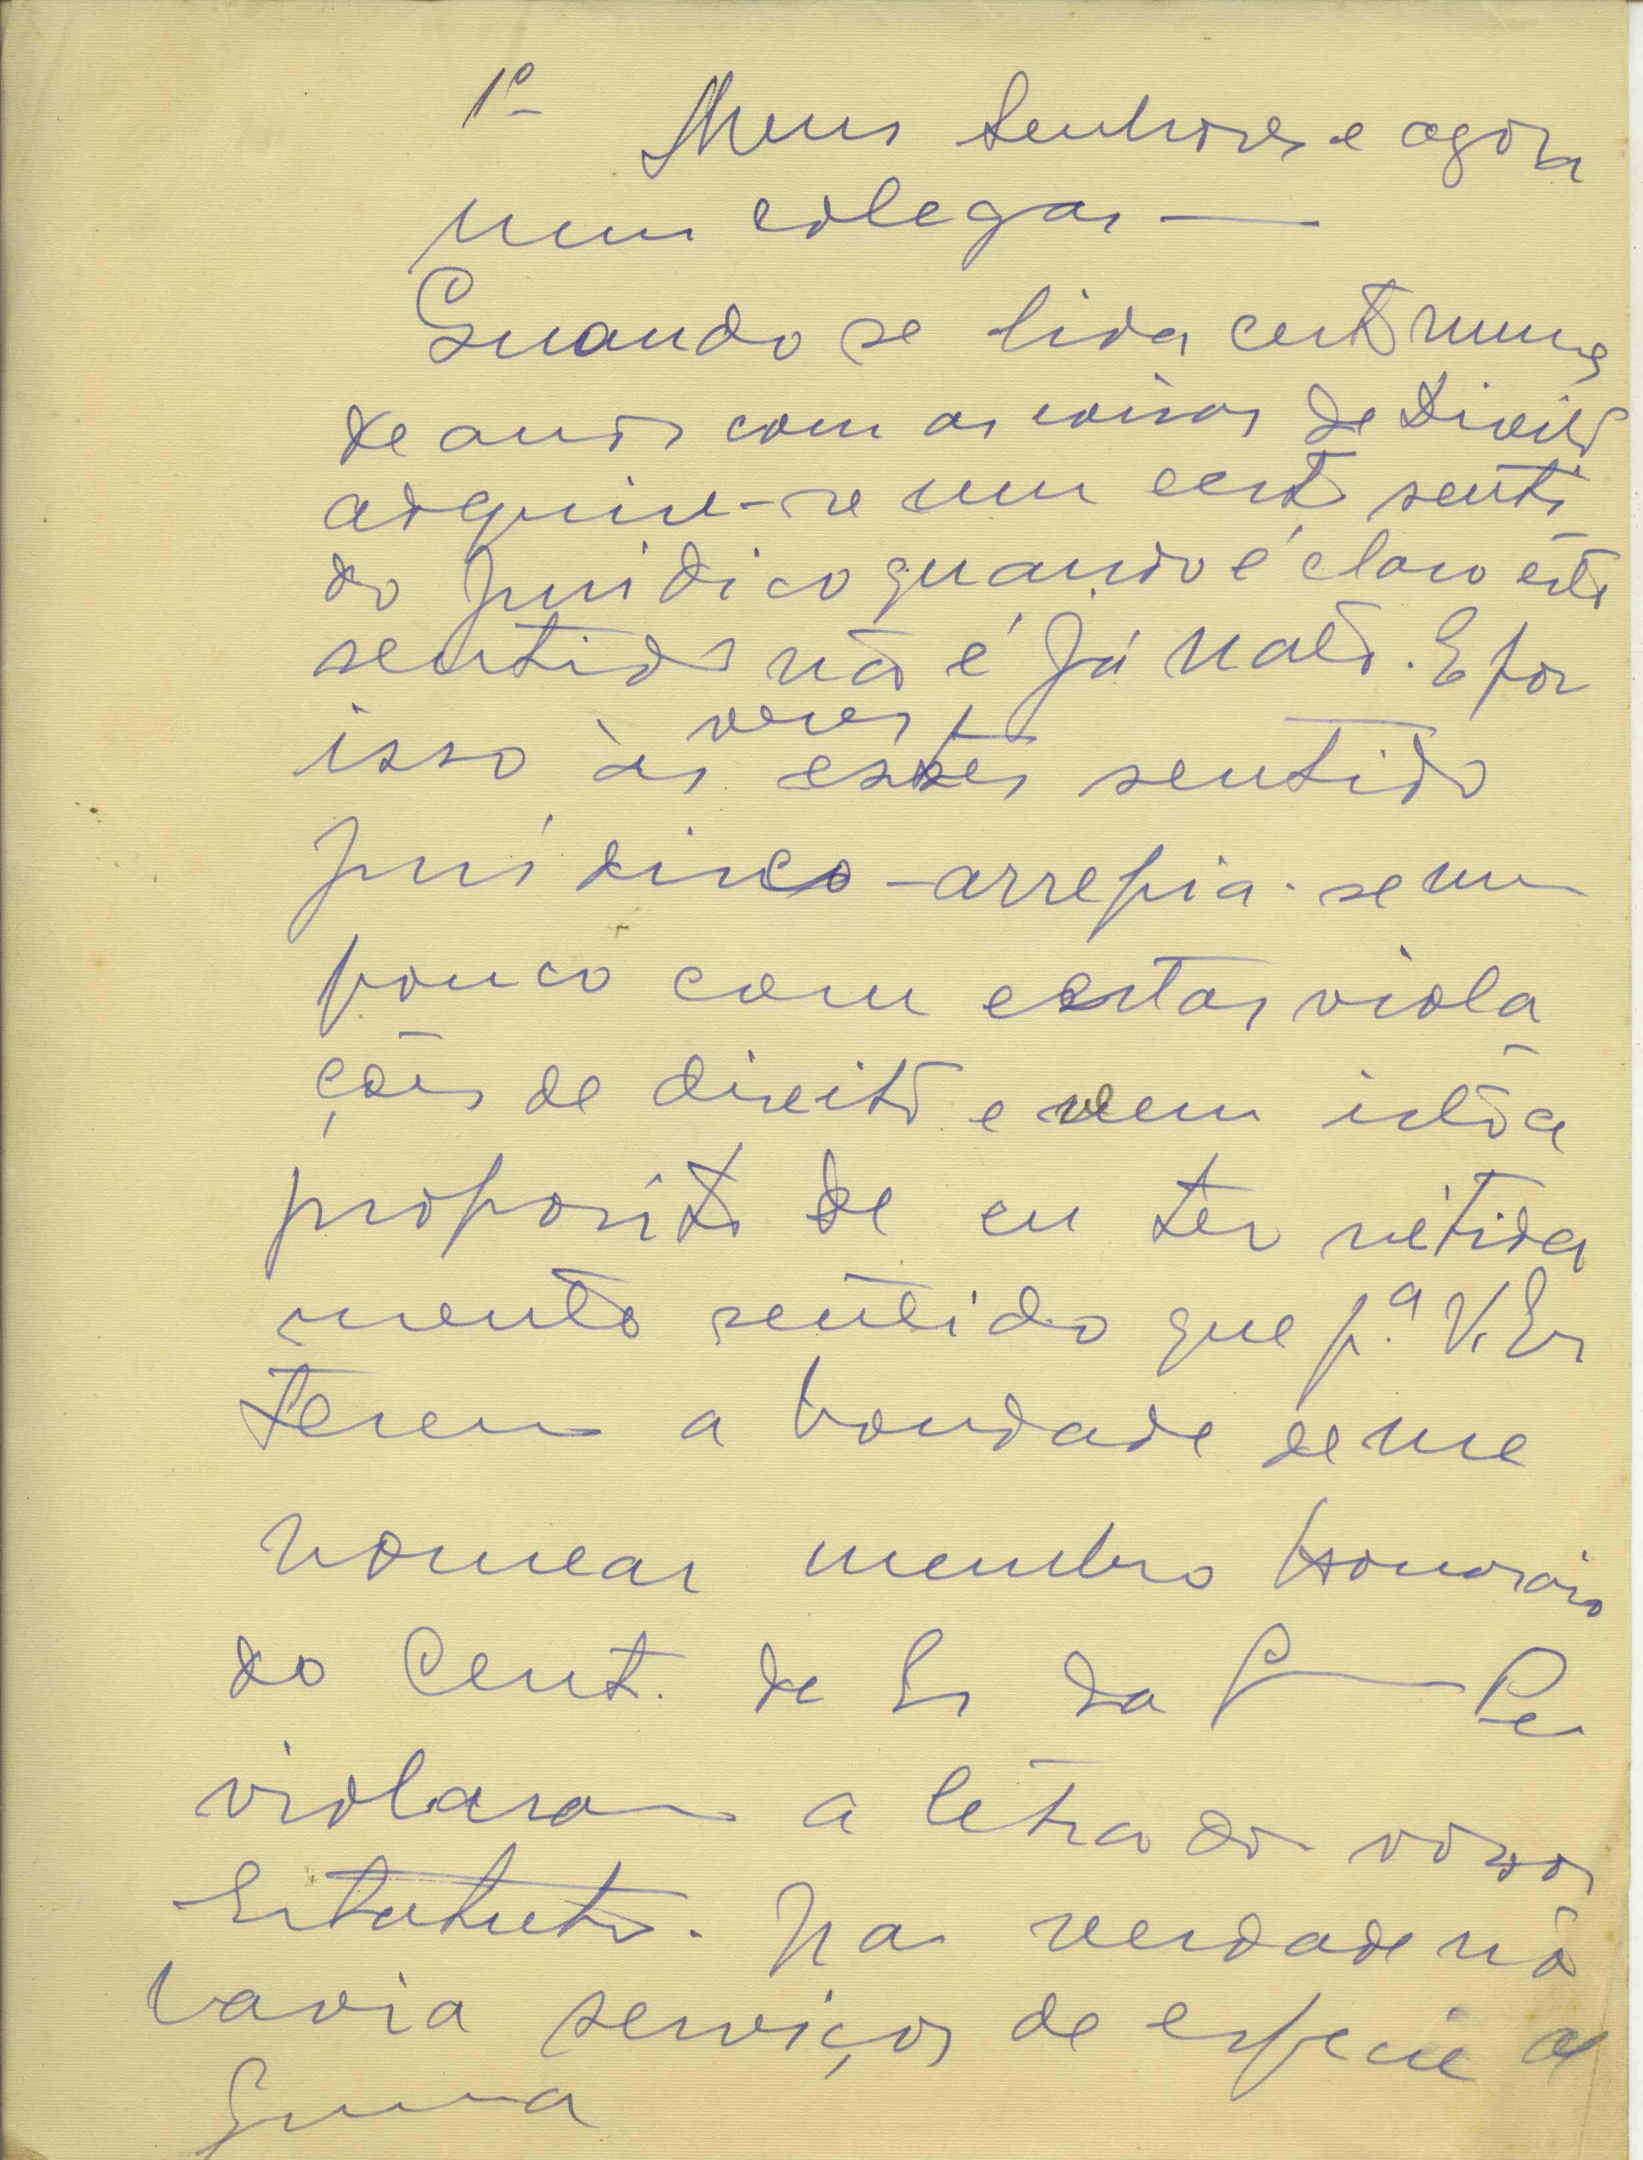 1º - Meus Senhores e agora
meus colegas —
Quando se lida certo numero
de anos com as coisas de Direito
adquire-se um certo senti
do juridico quando é claro êste
sentido não é já nato. E por
isso às vezes êste sentido
juridico - arrepia-se um
pouco com certas viola
ções de direito e vem isto a
proposito de eu ter nitida
mente sentido que p.ª V. Ex
terem a bondade de me
nomear membro honorario
do Cent. de Es da G— Pe
violaram a letra dos vossos
Estatutos. Na verdade não
havia serviços de especie al
guma